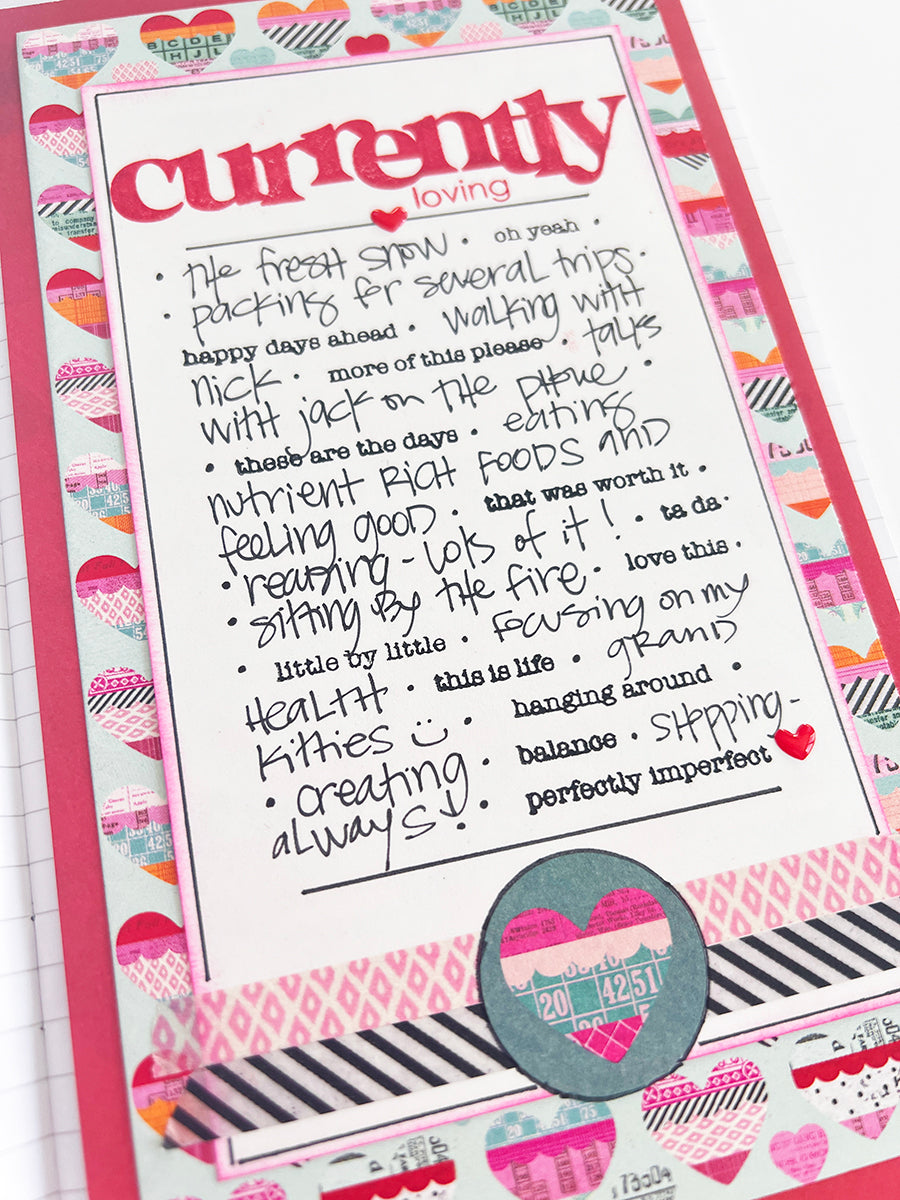 currently
loving
• the fresh snow • oh yeah •
• packing for several trips •
happy days ahead • walking with
nick • more of this please • talks
with jack on the phone •
• these are the days • eating
nutrient rich foods and
feeling good • that was worth it •
• reading - lots of it! • ta da •
• sitting by the fire • love this •
• little by little • focusing on my
health • this is life • grand
kitties • hanging around •
• creating • balance • stepping -
always! • perfectly imperfect
20 42 51